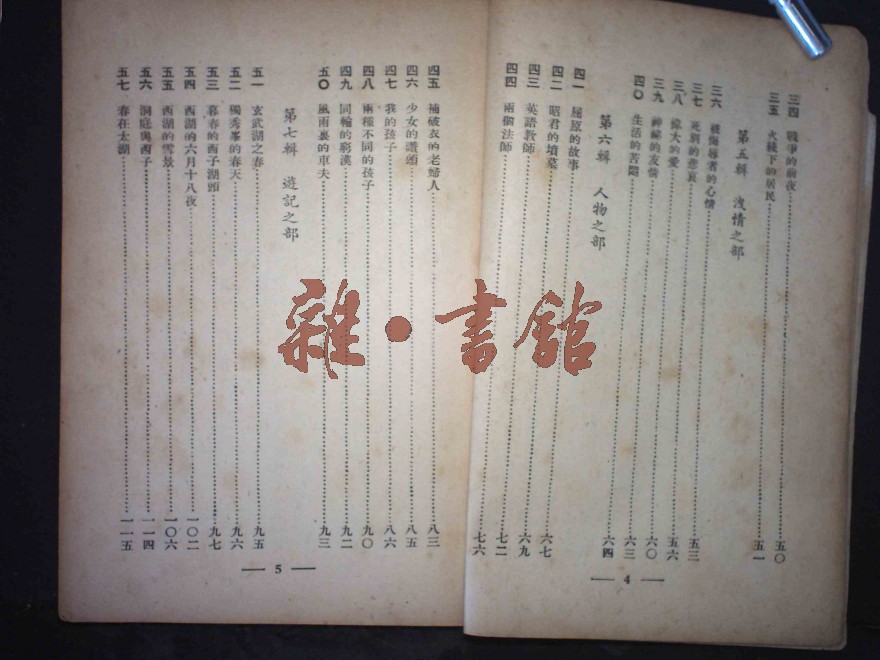 三四　戰爭的前夜……五〇
三五　火綫下的居民……五一
第五輯　洩情之部
三六　被侮辱者的心情……五三
三七　死别的悲哀……五六
三八　偉大的愛……六〇
三九　神祕的友情……六三
四〇　生活的苦悶……六四
第六輯　人物之部
四一　屈原的故事……六七
四二　昭君的墳墓……六九
四三　英語教師……七二
四四　兩個法師……七六
— 4 —
四五　補破衣的老婦人……八三
四六　少女的讚頌……八五
四七　我的孩子……八六
四八　兩種不同的孩子……九〇
四九　同輪的窮漢……九二
五〇　風雨裏的車夫……九三
第七輯　遊記之部
五一　玄武湖之春……九五
五二　獨秀峯的春天……九六
五三　暮春的西子湖頭……九七
五四　西湖的六月十八夜……一〇二
五五　西湖的雪景……一〇六
五六　洞庭與西子……一一四
五七　春在太湖……一一五
— 5 —
雜·書館